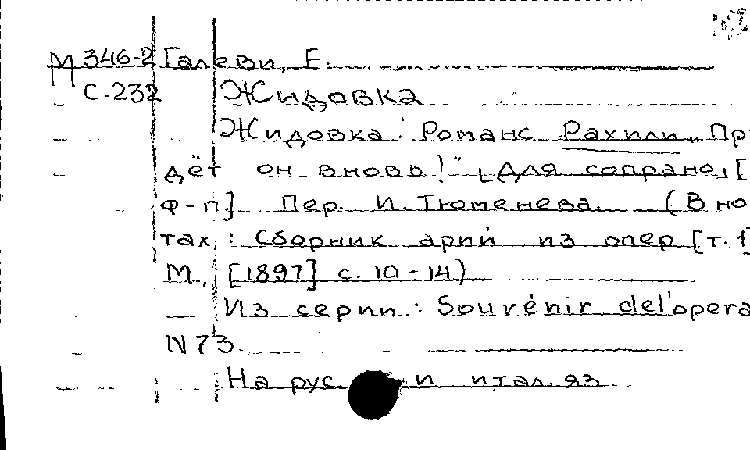 М 346-2 Галеви, Е.
С.232 Жидовка
Жидовка: Романс Рахили „Пр
дёт он вновь!" [Для сопрано, [
ф-п] Пер. И. Тюменева. (В но
тах: Сборник арий из опер [т. 1]
М., [1897] с. 10-14)
Из серии: Souvénir del'opera
N 73.
На рус. и итал. яз.